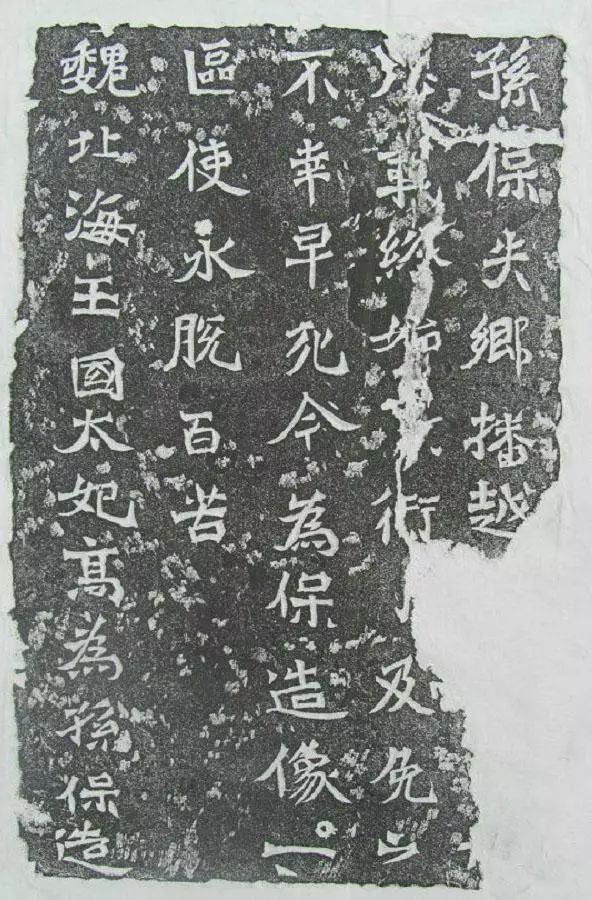 孫保失鄉播越
事終始衍及免
不幸早死今為保造像一
區使永脫百苦
魏北海王國太妃高為孫保造